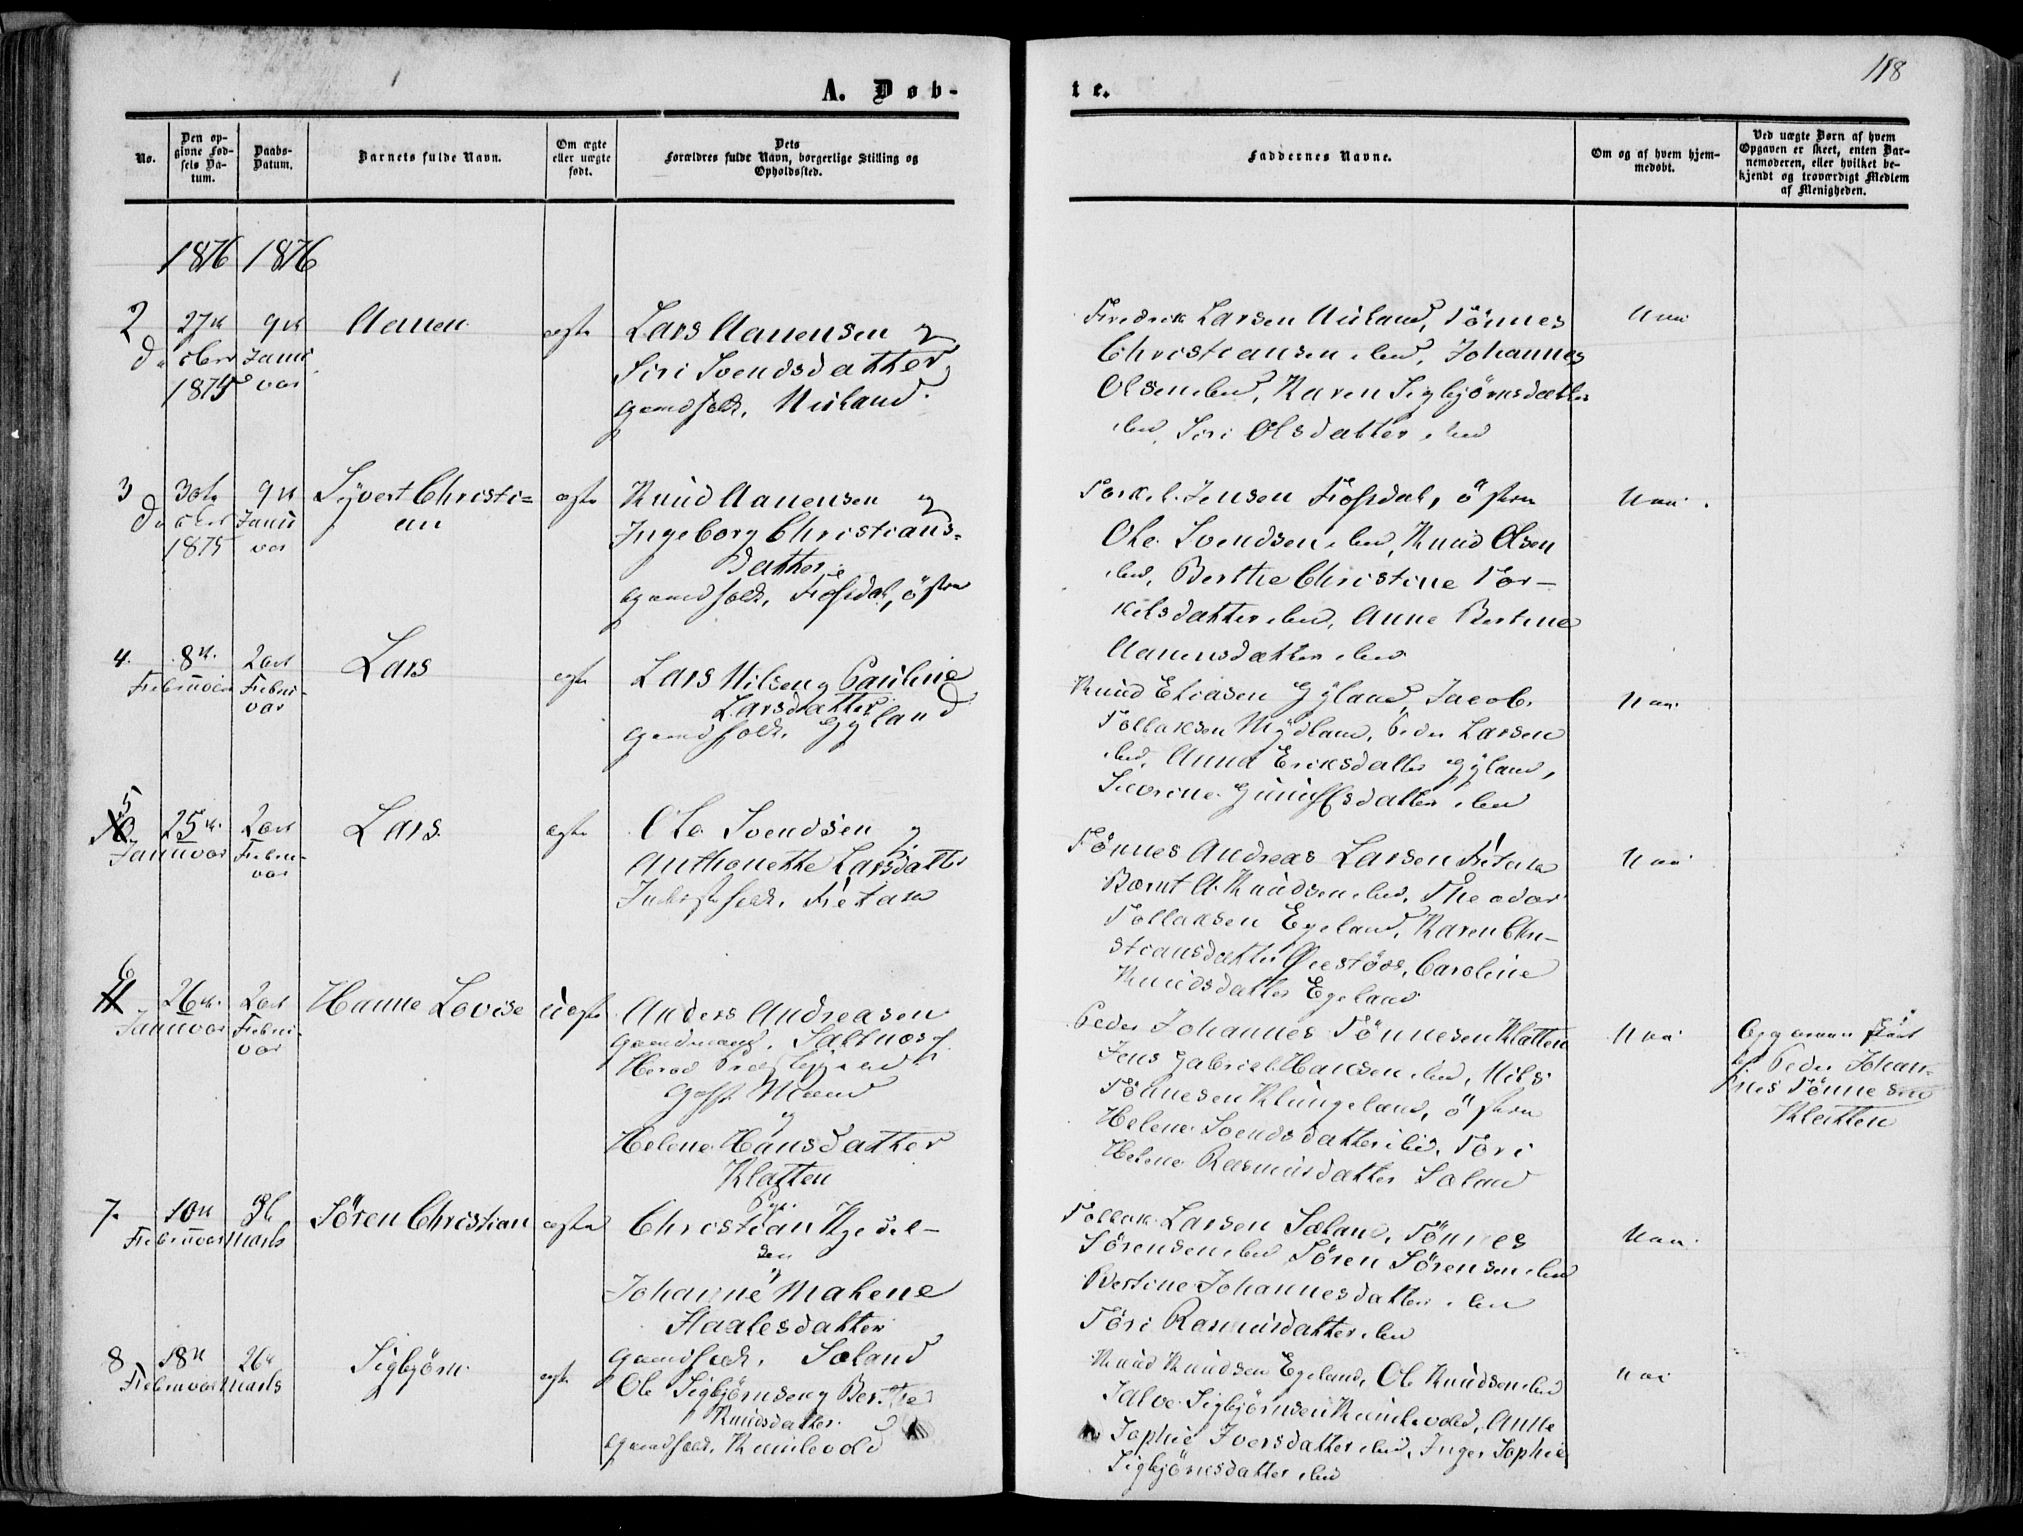 118
A. Døb-
te.
No.
Den op-
givne Fød-
sels Da-
tum.
Daabs-
Datum.
Barnets fulde Navn.
Om ægte
eller uægte
født.
Dets
Forældres fulde Navn, borgerlige Stilling og
Opholdssted.
Faddernes Navne.
Om og af hvem hjem-
medøbt.
Ved uægte Børn af hvem
Opgaven er skeet, enten Bar-
nemoderen, eller hvilket be-
kjendt og troværdigt Medlem
af Menigheden.
1876 1876
2
27de
1875
9de
Janu
var
Aanen
ægte
Lars Aanensen og
Siri Svendsdatter,
gaardfolk, Nuland.
Fredrik Larsen Nuland, Tönnes
Christiansen ibid, Johannes
Olsen ibid, Karen Sigbjörnsdatter
ibid, Siri Olsdatter ibid
Nei
3
30te
1875
9de
Janu
var
Syvert Christi=
an
ægte
Knud Aanensen og
Ingeborg Christians=
datter
gaardfolk, Fosdal, östre
Torkel Jensen Fosdal, östre
Ole Svendsen ibid, Knud Olsen
ibid, Berthe Christine Tor-
kelsdatter ibid, Anne Bertine
Aanensdatter ibid
Nei
4.
8de
Februar
20de
Febru-
var
Lars
ægte
Lars Nilsen og Pauline
Larsdatter
gaardfolk, Gyland
Knud Eliasen Gyland, Jacob
Tollaksen Mydland, Peder Larsen
ibid, Anna Eriksdatter Gyland,
Severine Gunulfsdatter ibid
Nei
5
25de
Januvar
20de
Febru-
var
Lars
ægte
Ole Svendsen og
Anthonette Larsdatter
Tönnes Andreas Larsen
Bernt A. Knudsen ibid, Theodor
Tollaksen Egeland, Karen Chri-
stiansdatter, Caroline
Knudsdatter Egeland
Nei
6
26de
Januvar
20de
Febru-
var
Hanne Lovise
uægte
Anders Andreasen
gaardmand,
gift Mand
og
Helene Hansdatter
Klatten
Pige
Peder Johannes Tönnesen Klatten
Jens Gabriel Hansen ibid, Nils
Tönnesen Klungeland, östre
Helene Svendsdatter ibid, Töri
Helene Rasmusdatter Soland
Nei
Opgaven skeet
af Peder Johan-
nes Tönnesen
Klatten
7.
10de
Februar
Marts
Sören Christian
ægte
Christian Kjedel-
sen
og
Johanne Malene
Haalesdatter
gaardfolk, Soland
Tollak Larsen Soland, Tönnes
Sörensen ibid Sören Sörensen ibid
Bertine Johannesdatter ibid
Töri Rasmusdatter ibid
Nei
8
18de
Februar
26de
Marts
Sigbjörn
ægte
Ole Sigbjörnsen og Berthe
Knudsdatter
gaardfolk,
Knud Knudsen Egeland, Ole Knudsen ibid
Salve Sigbjörnsen, Anne
Sophie Iversdatter ibid, Inger Sophie
Sigbjörnsdatter ibid
Nei